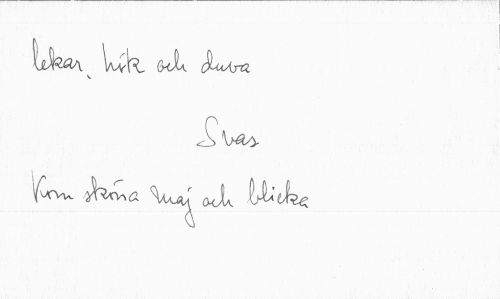 lekar, hök och duva
Svas
Kom sköna maj och blicka